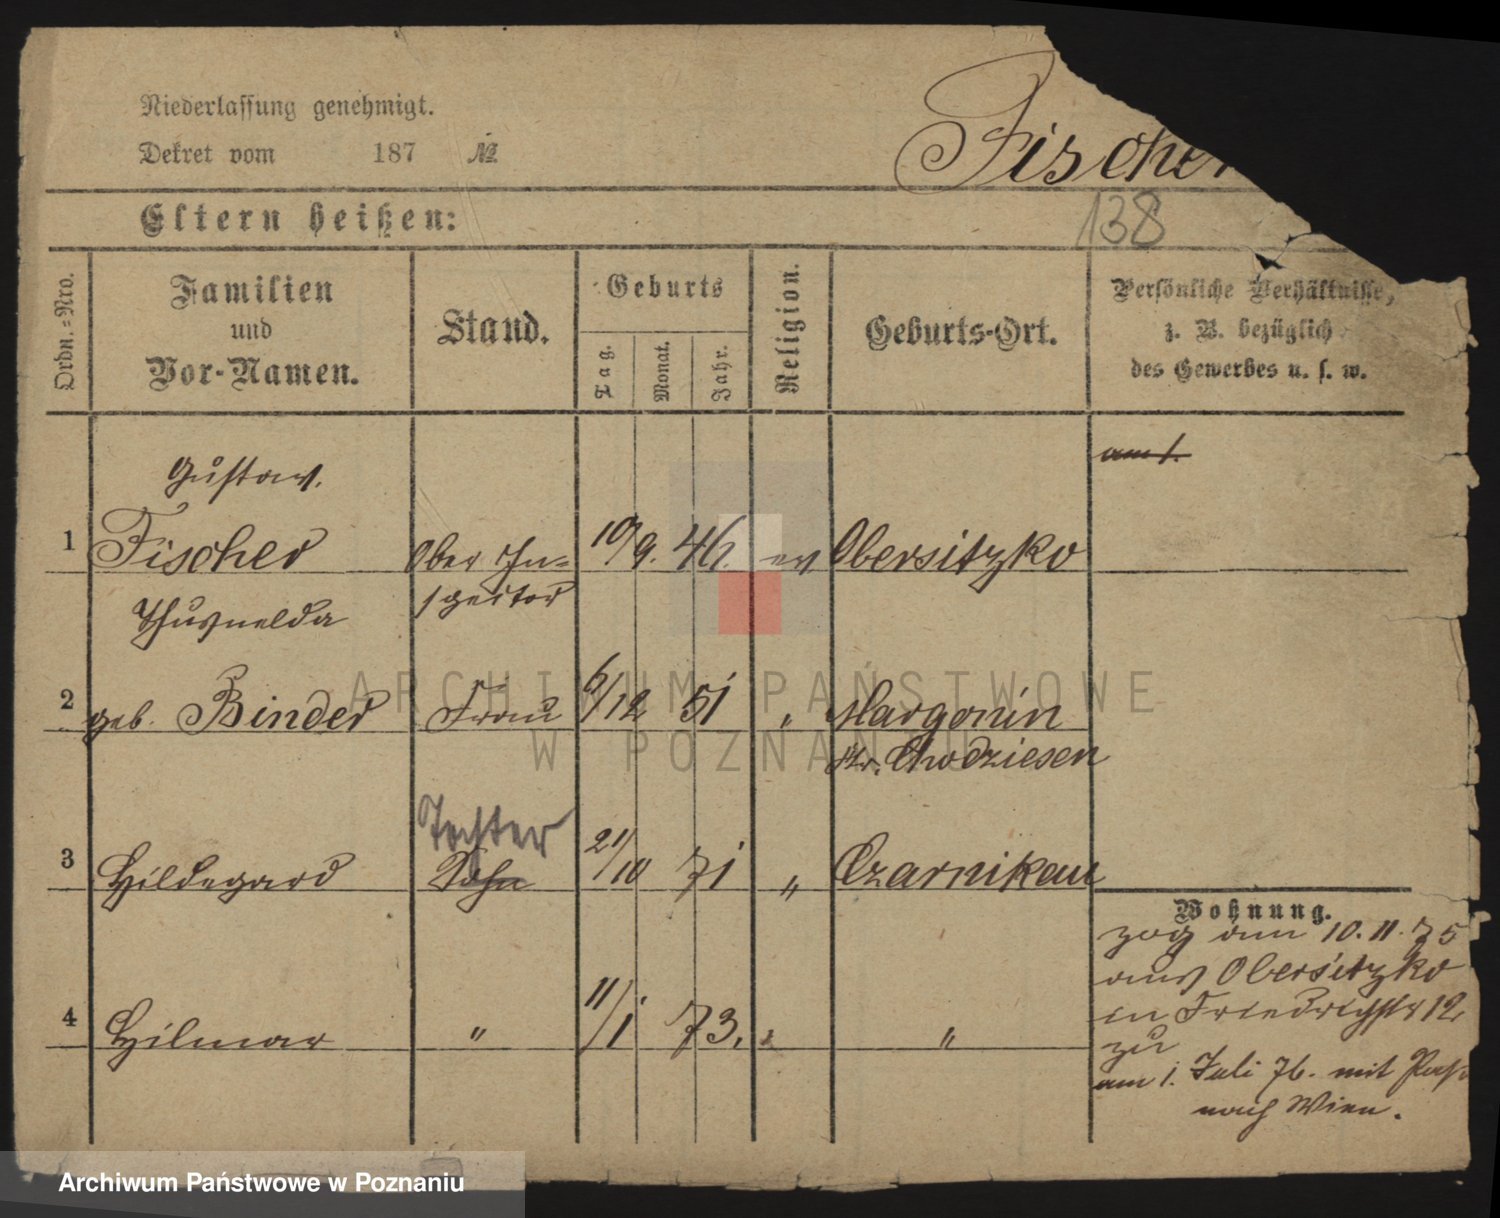 Niederlassung genehmigt.
Dekret vom 187 №
Fischer
Eltern heißen:
138
Ordn.=Nro.
Familien
und
Vor-Namen.
Stand.
Geburts
Tag.
Monat.
Jahr.
Religion.
Geburts-Ort.
Persönliche Verhältnisse,
z. B. bezüglich
des Gewerbes u. s. w.
am 1.
Gustav.
1 Fischer Ober In= 10/9. 46. ev Obersitzko
spector
Thusnelda
2 geb. Binder Frau 6/12 51 " Margonin
Kr. Chodziesen
Tochter
3 Hildegard Sohn 21/10 71 " Czarnikau
Wohnung.
zog am 10. 11. 75
aus Obersitzko
in Friedrichstr 12
zu
4 Hilmar " 11/1 73. " "
am 1. Juli 76. mit Paß
nach Wien.
ARCHIWUM PAŃSTWOWE
W POZNANIU
Archiwum Państwowe w Poznaniu